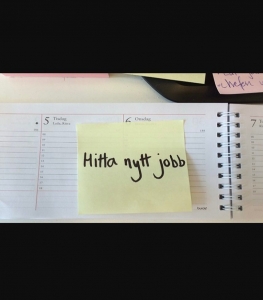 chefen
5 Tisdag
6 Onsdag
7
Hitta nytt jobb